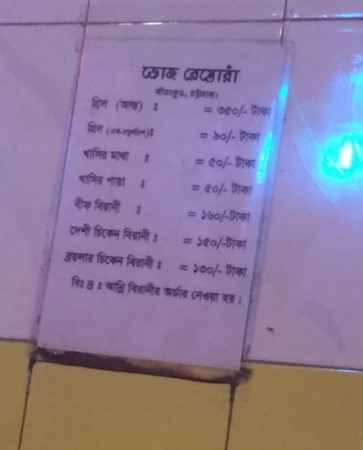 ভোজ রেস্তোরাঁ
সীতাকুন্ড, চট্টগ্রাম।
গ্রিল (আস্ত) : = ৩৫০/- টাকা
গ্রিল (এক-চতুর্থাংশ) : = ৯০/- টাকা
খাসির মাথা : = ৫০/- টাকা
খাসির পায়া : = ৫০/- টাকা
বীফ বিরানী : = ১৬০/-টাকা
দেশী চিকেন বিরানী : = ১৫০/-টাকা
ব্রয়লার চিকেন বিরানী : = ১৩০/- টাকা
বিঃ দ্রঃ আখনি বিরানীর অর্ডার নেওয়া হয়।